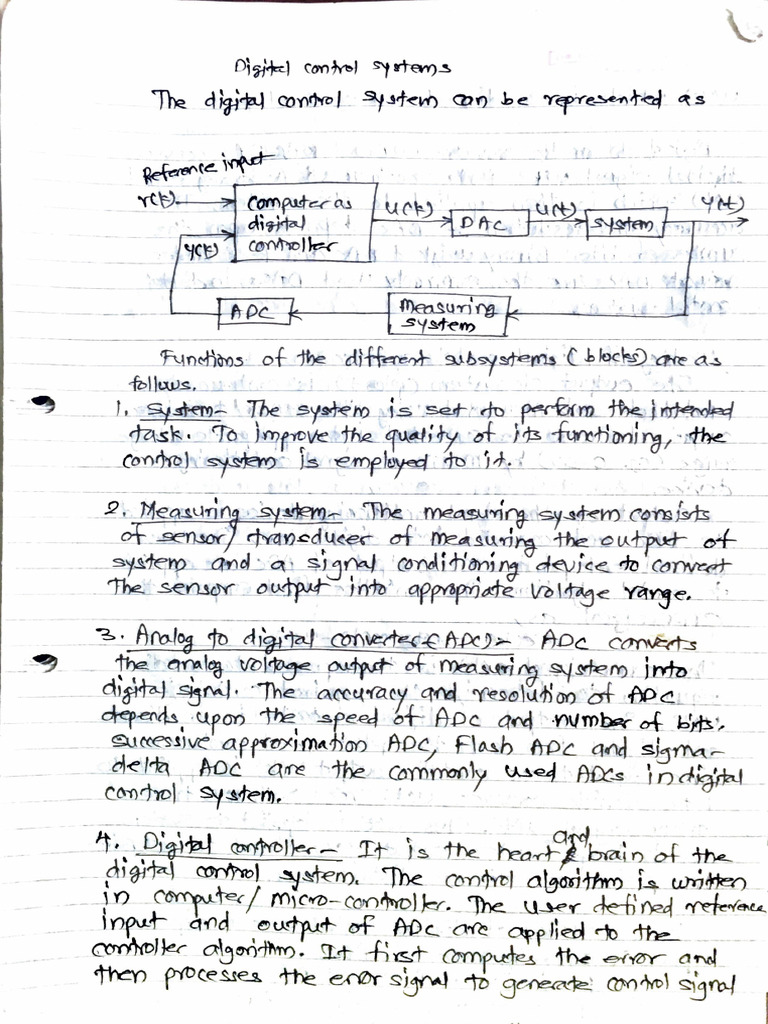 Digital control systems
The digital control system can be represented as
Reference input
r(k)
Computer as
digital
controller
U(k)
DAC
U(t)
system
Y(t)
ADC
Measuring
system
Functions of the different subsystems (blocks) are as
follows.
1. System- The system is set to perform the intended
task. To improve the quality of its functioning, the
control system is employed to it.
2. Measuring system- The measuring system consists
of sensor/ transducer of measuring the output of
system and a signal conditioning device to convert
the sensor output into appropriate voltage range.
3. Analog to digital converter (ADC)- ADC converts
the analog voltage output of measuring system into
digital signal. The accuracy and resolution of ADC
depends upon the speed of ADC and number of bits.
successive approximation ADC, Flash ADC and sigma-
delta ADC are the commonly used ADCs in digital
control system.
4. Digital controller- It is the heart and brain of the
digital control system. The control algorithm is written
in computer/ micro-controller. The user defined reference
input and output of ADC are applied to the
controller algorithm. It first computes the error and
then processes the error signal to generate control signal